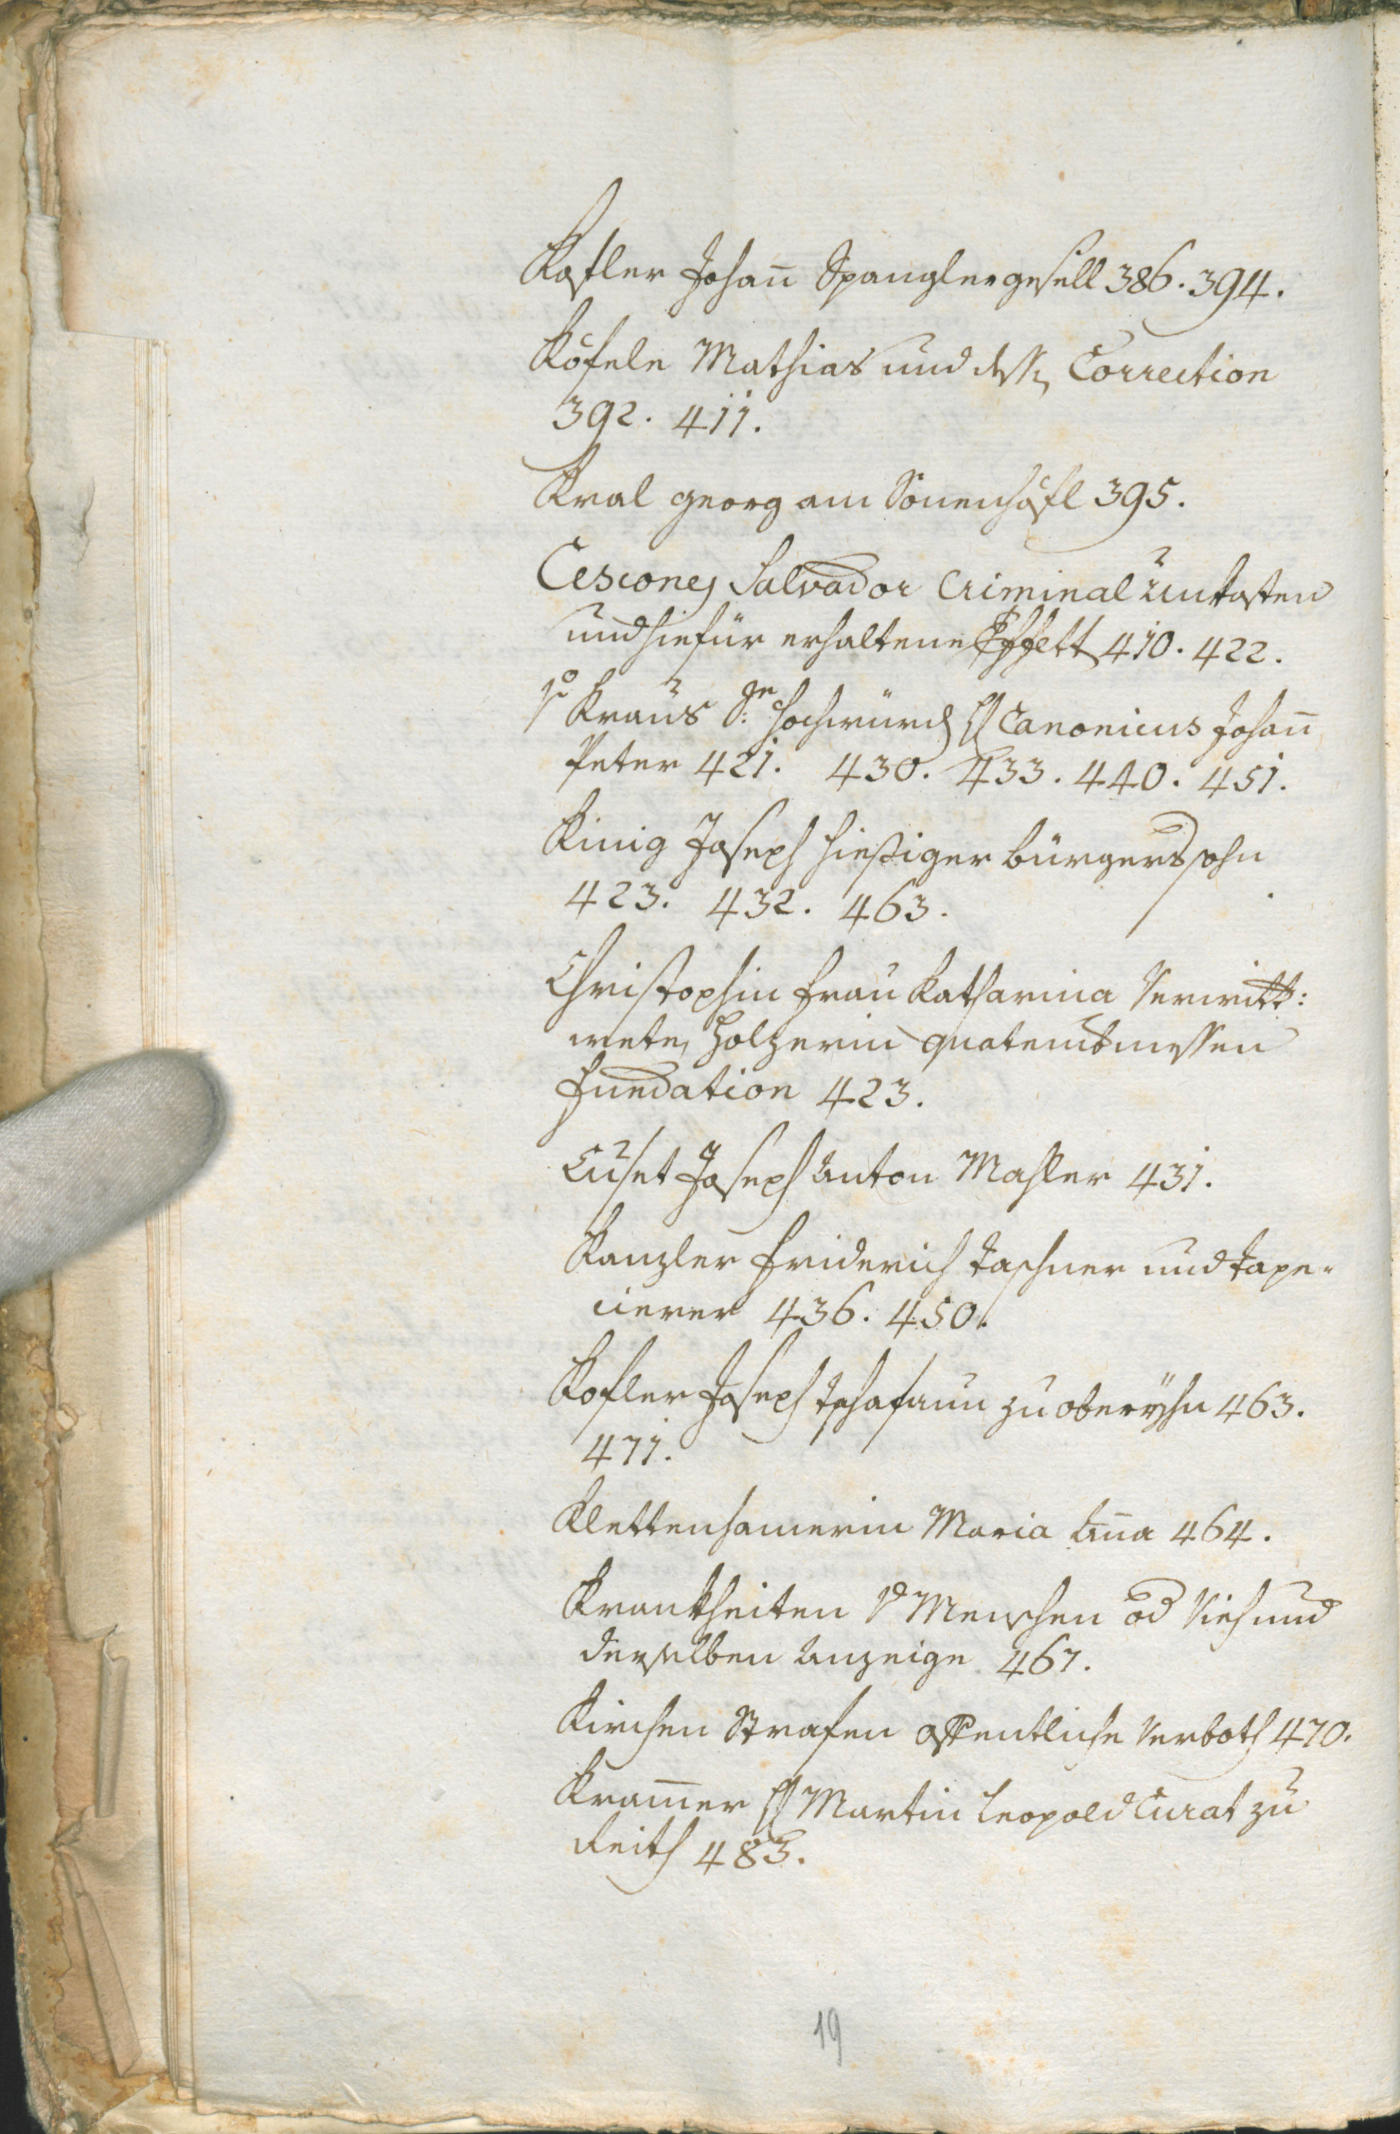 Kofler Johan̄ Spanglergesell 386. 394.
Köfele Mathias und dessen Correction
392. 411.
Kral georg am Sonenhöfl 395.
Cescones Salvador Criminal Unkosten
und hiefür erhaltene Effett 410. 422.
Kraus Sr: Hochwürd H Canonicus Johan̄
Peter 421. 430. 433. 440. 451.
Kinig Joseph hiesiger bürgerssohn
423. 432. 463.
Christophin frau Katharina Verwitt:
wete, Holzerin quatembmessen
fundation 423.
Cuset Joseph Anton Mahler 431.
Kanzler friderich taschner und tape-
cierer 436. 450.
Kofler Joseph tschafaun zu oberrysn 463.
471.
Klettenhamerin Maria An̄a 464.
Krankheiten d Menschen od Vieh und
derselben Anzeige 467.
Kirchen Strafen offentliche Verboth 470.
Kram̄er H Martin Leopold Curat zu
Reith 483.
19